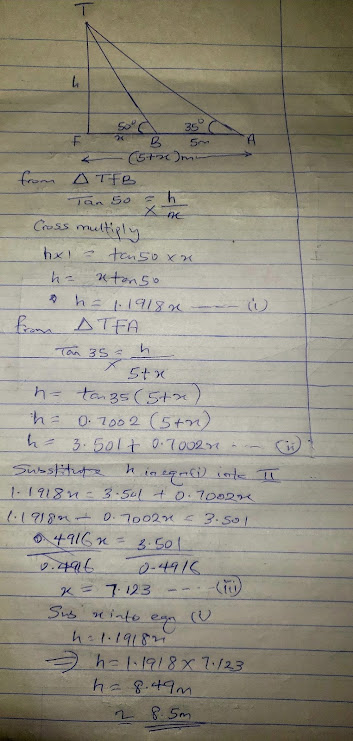 T
h
50° 35°
F x B 5m A
(5+x)m
from △ TFB
Tan 50 = h/x
Cross multiply
h×1 = tan50 × x
h = xtan50
h = 1.1918x ---- (i)
from △TFA
Tan 35 = h/5+x
h = tan35(5+x)
h = 0.7002 (5+x)
h = 3.501 + 0.7002x --- (ii)
Substitute h in eqn(i) into II
1.1918x = 3.501 + 0.7002x
1.1918x - 0.7002x = 3.501
0.4916x = 3.501
0.4916 0.4916
x = 7.123 ---- (iii)
Sub x into eqn (i)
h = 1.1918x
⇒ h = 1.1918 × 7.123
h = 8.49m
≈ 8.5m